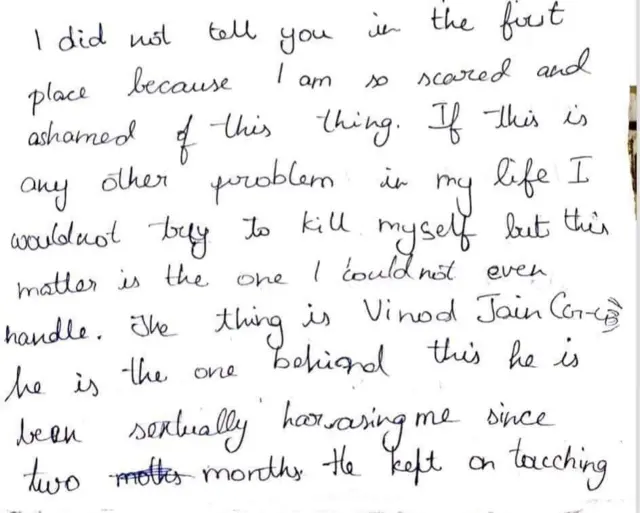 I did not tell you in the first
place because I am so scared and
ashamed of this thing. If this is
any other problem in my life I
wouldnot try to kill myself but this
matter is the one I could not even
handle. The thing is Vinod Jain
he is the one behind this he is
been sexually harrasing me since
two months He kept on tocching